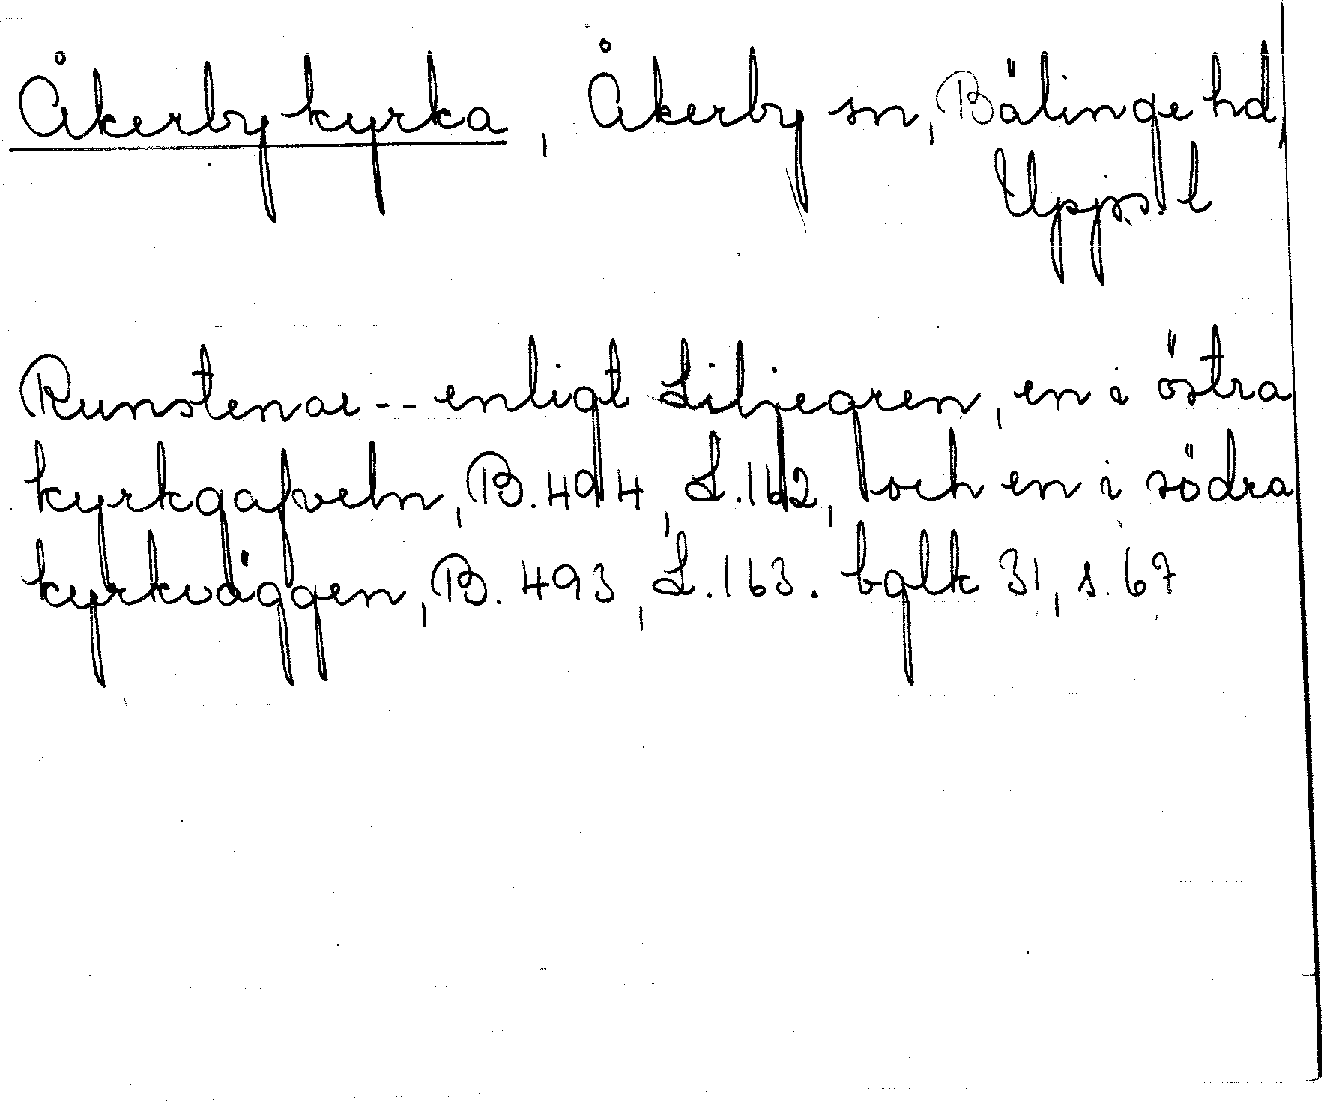 Åkerby kyrka, Åkerby sn, Bälinge hd,
Upps. l
Runstenar -- enligt Liljegren, en i östra
kyrkgafveln, B. 494, L. 162, och en i södra
kyrkväggen, B. 493, L. 163. bglk 31, s. 67